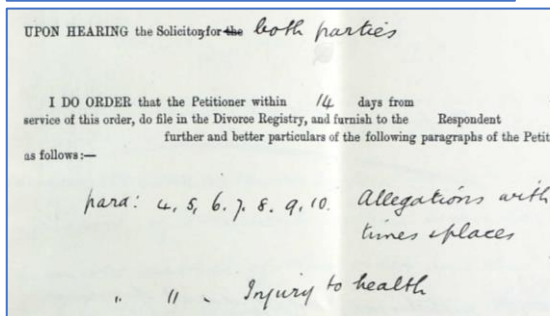 UPON HEARING the Solicitors for the both parties
I DO ORDER that the Petitioner within 14 days from
service of this order, do file in the Divorce Registry, and furnish to the Respondent
further and better particulars of the following paragraphs of the Petit
as follows:—
para: 4, 5, 6. 7. 8. 9. 10. Allegations with
times & places
" 11 . Injury to health